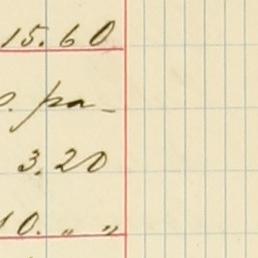 15.60
. pa-
3.20
10. „ „